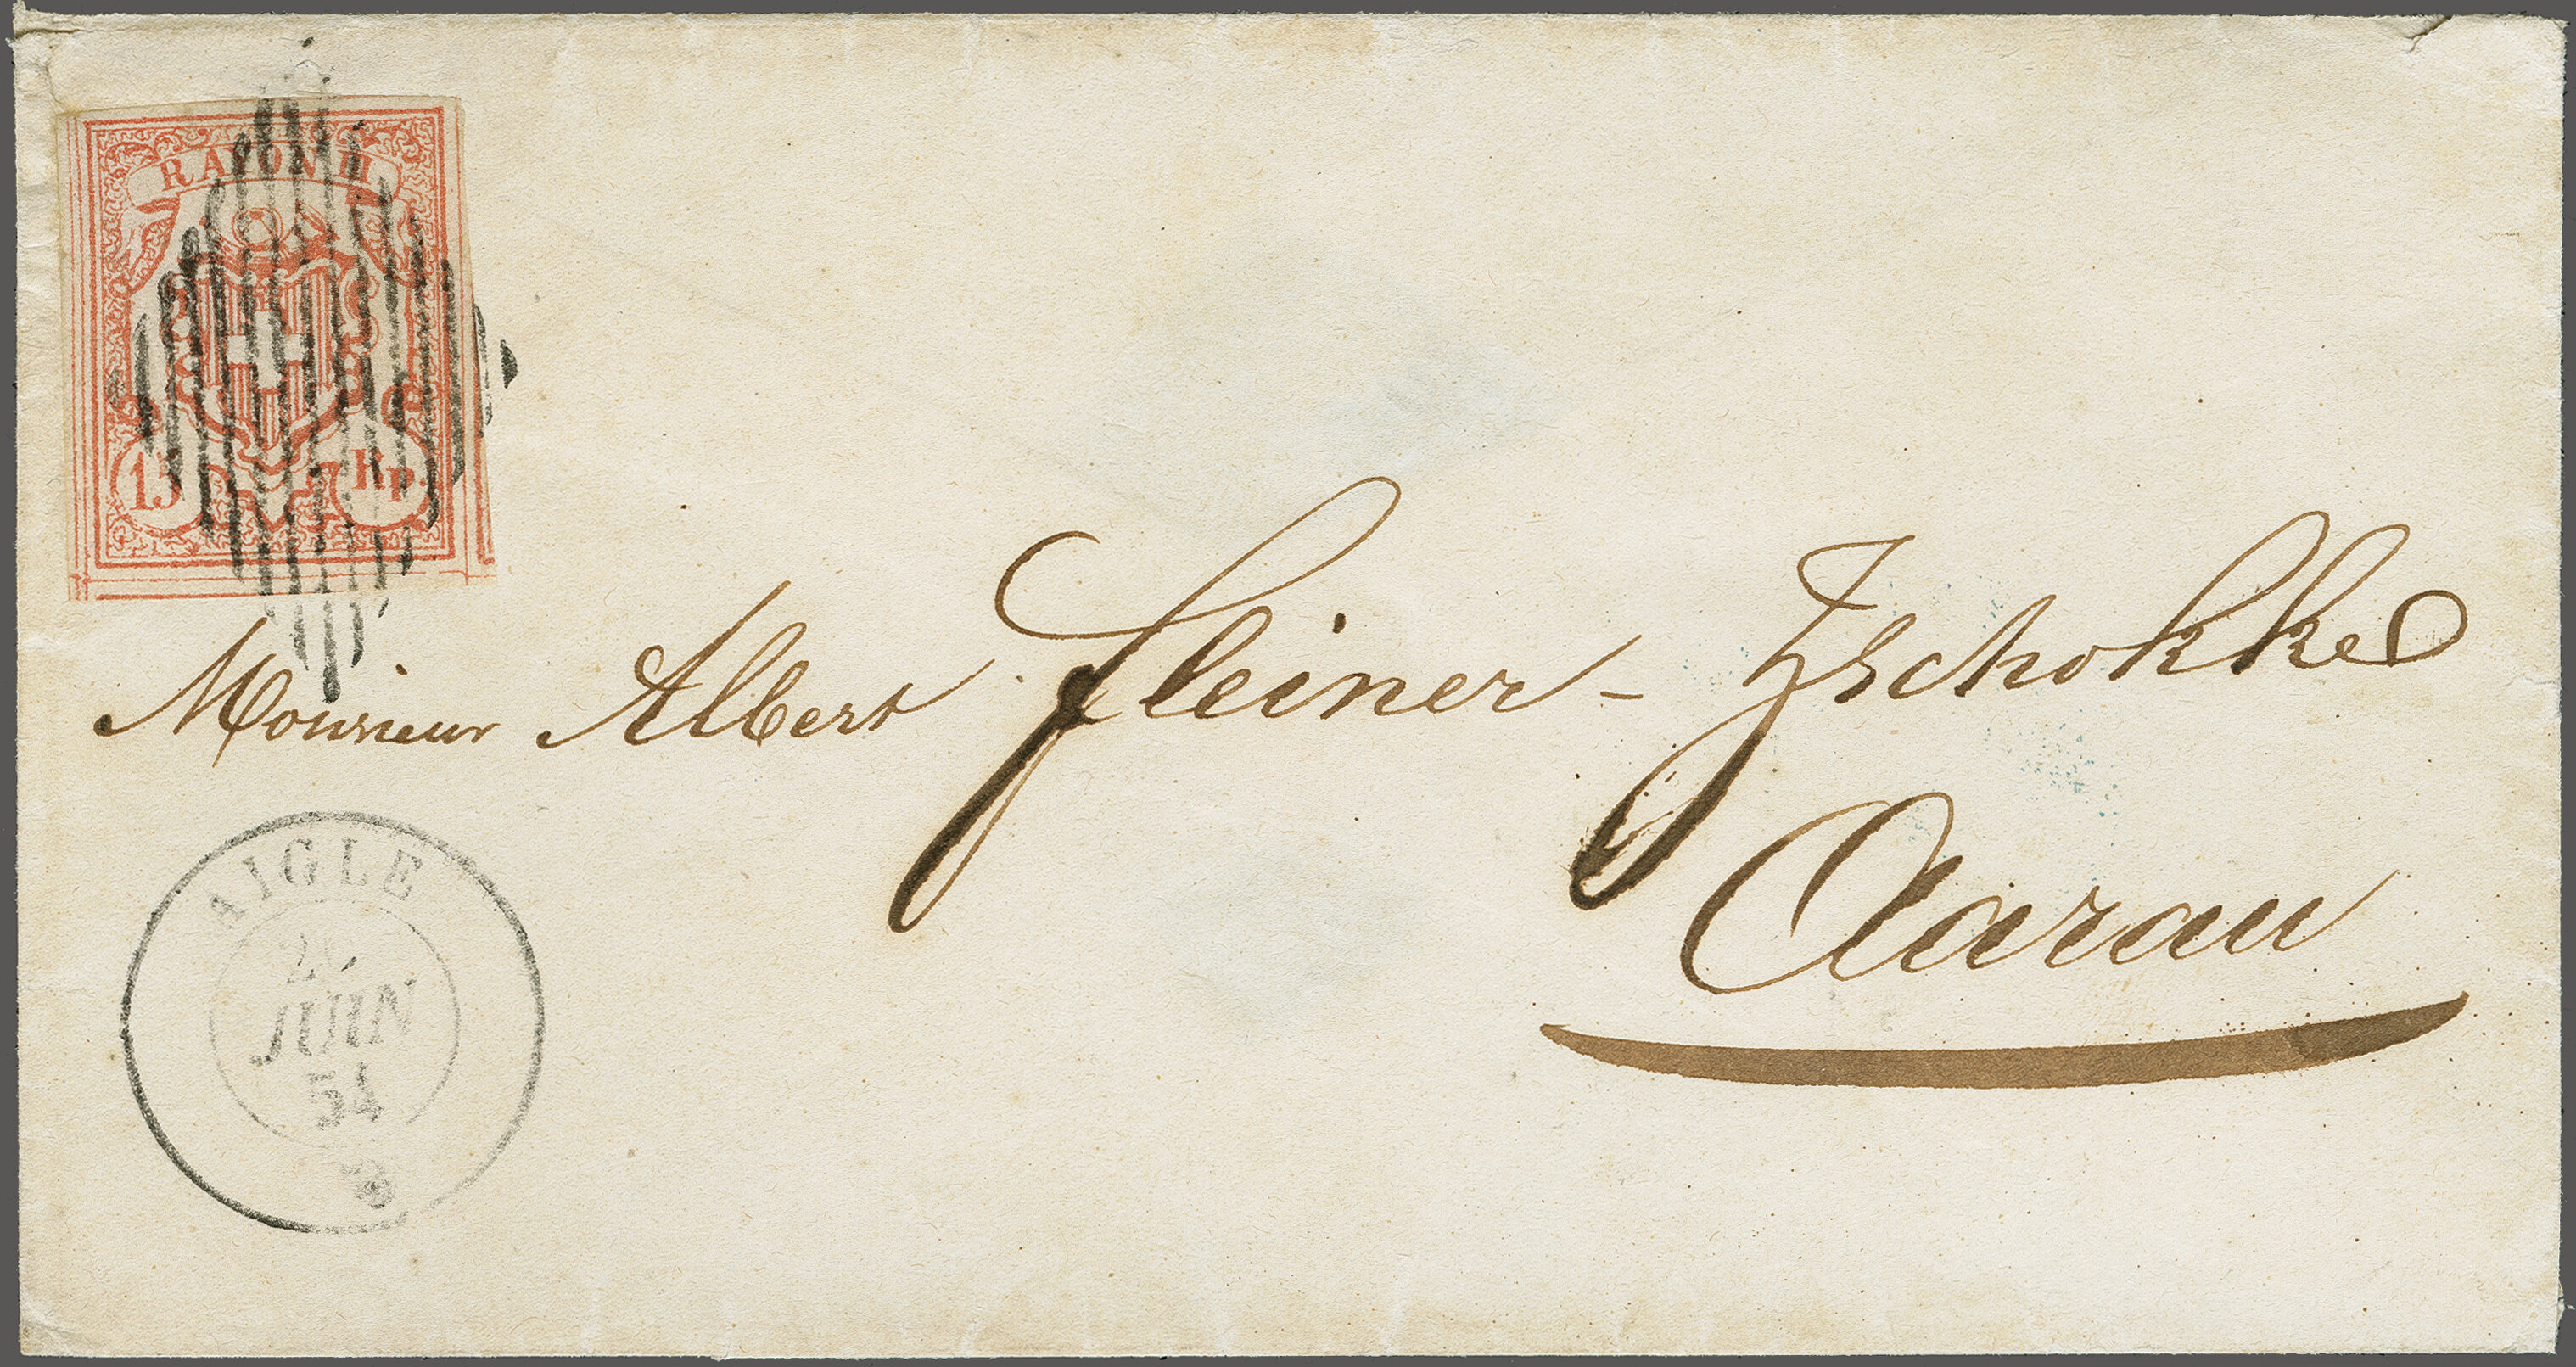 RAYON III
15 Rp.
Monsieur Albert Fleiner-Zschokke
Aarau
AIGLE
JUIN
54